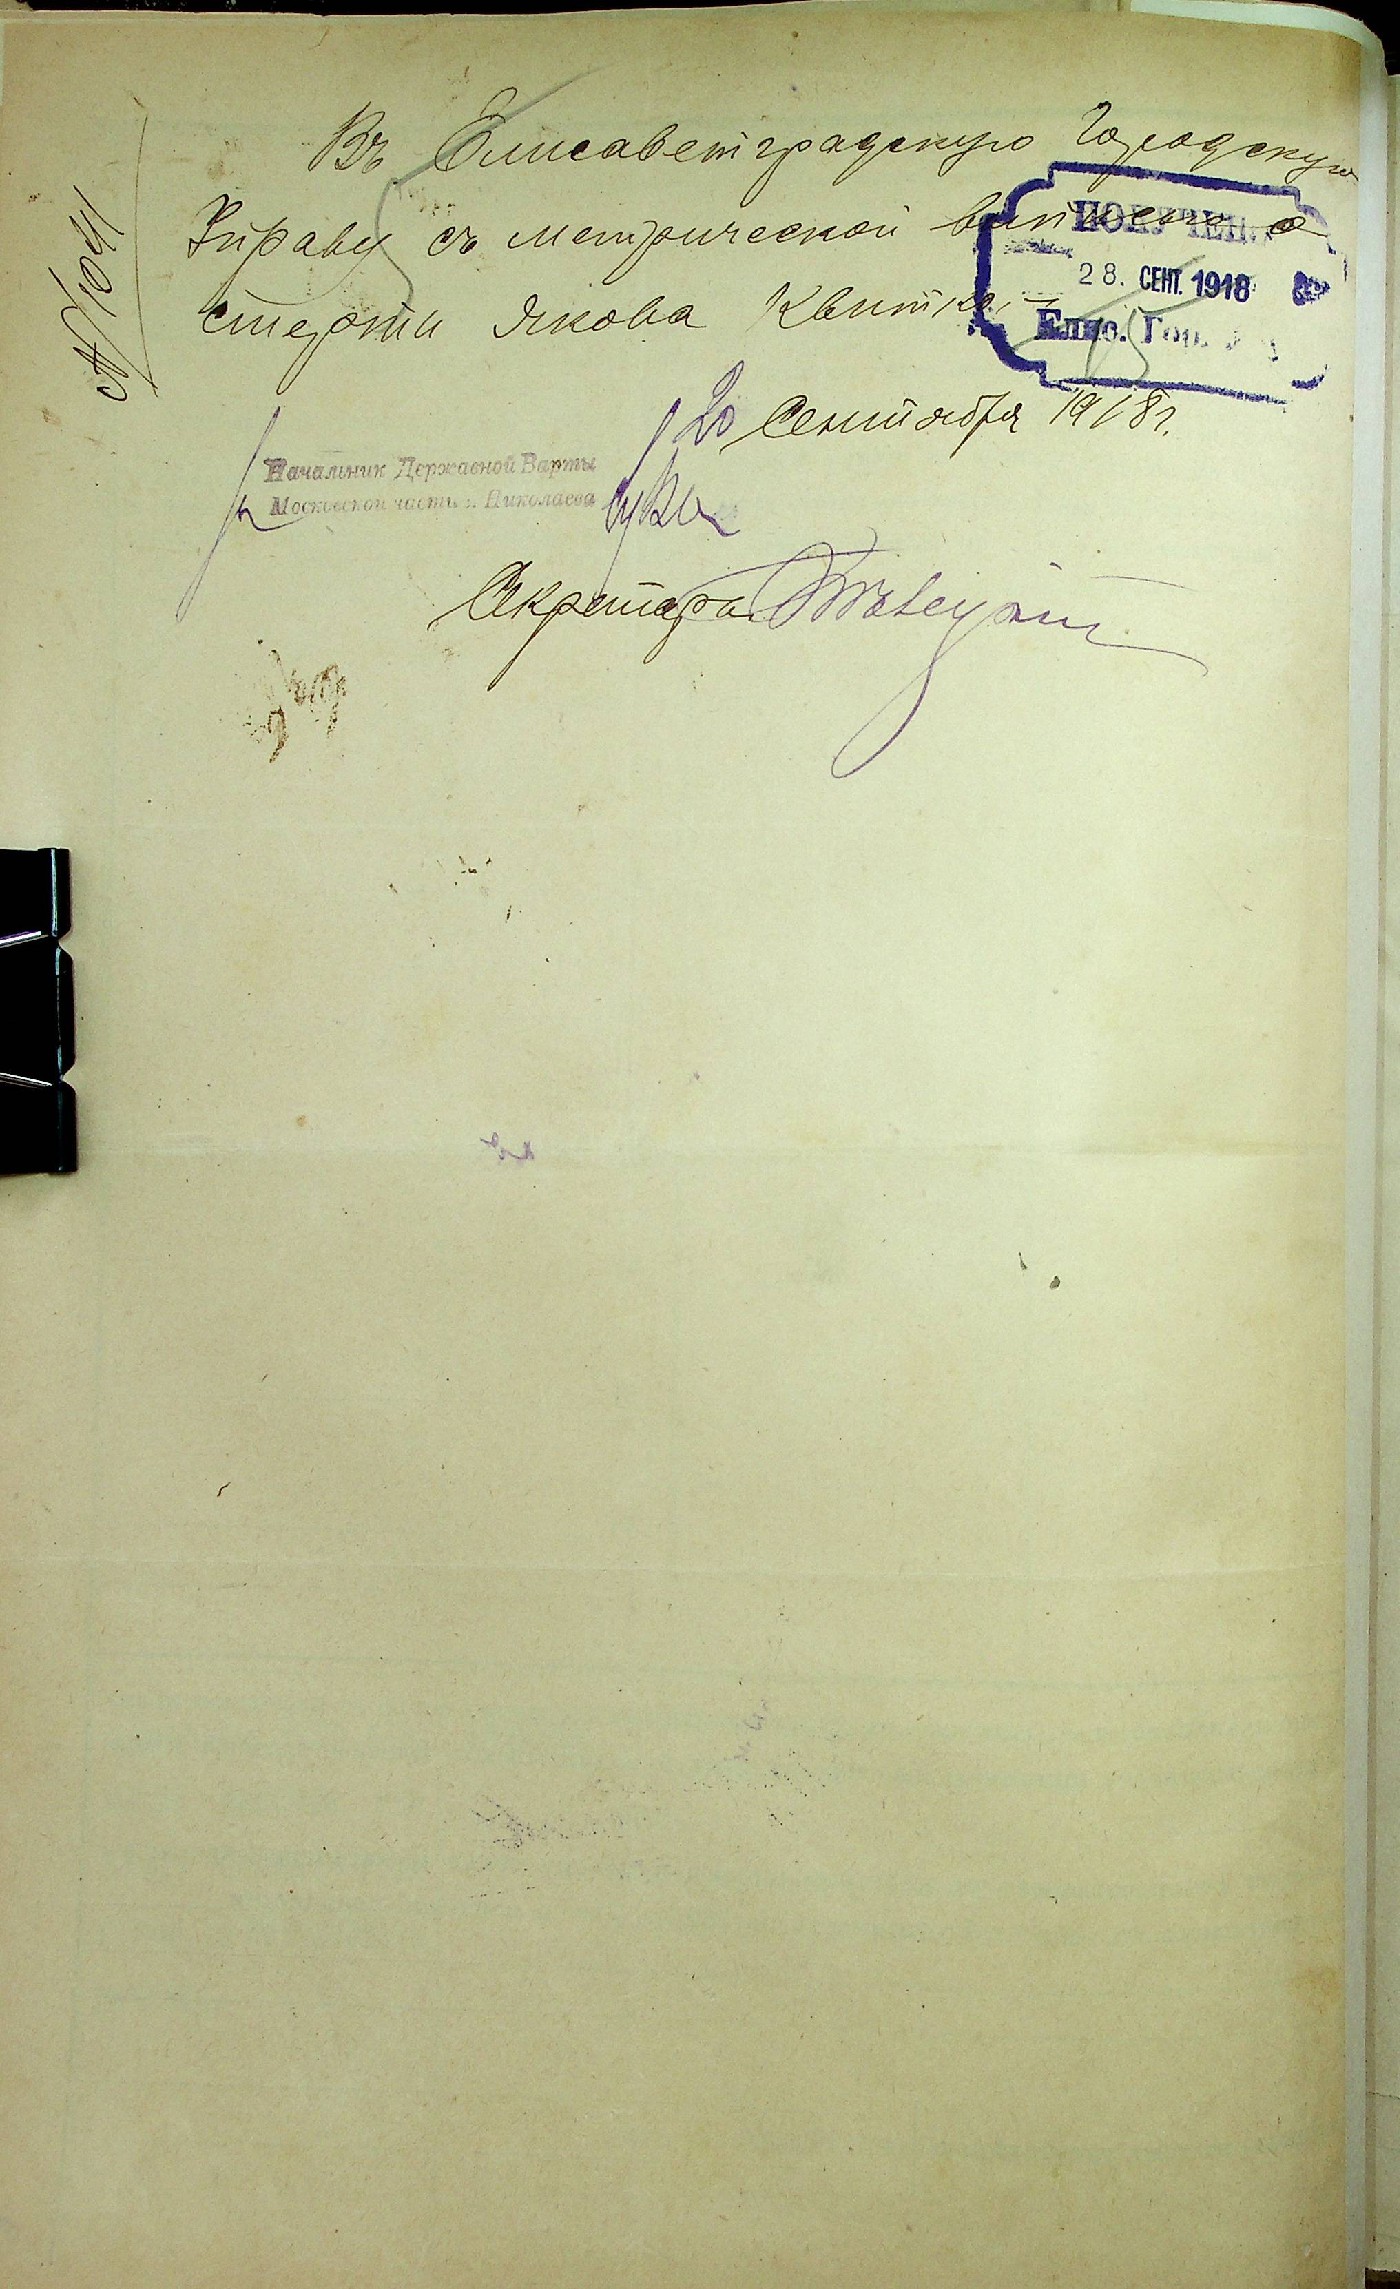 Въ Елисаветградскую Городскую
Управу съ метрической выпиской о
смерти Якова Квитко
ПОЛУЧЕНО
28. СЕНТ. 1918
Елис. Гор.
20 Сентября 1918 г.
Начальник Державной Варты
Московской части г. Николаева
Секретарь